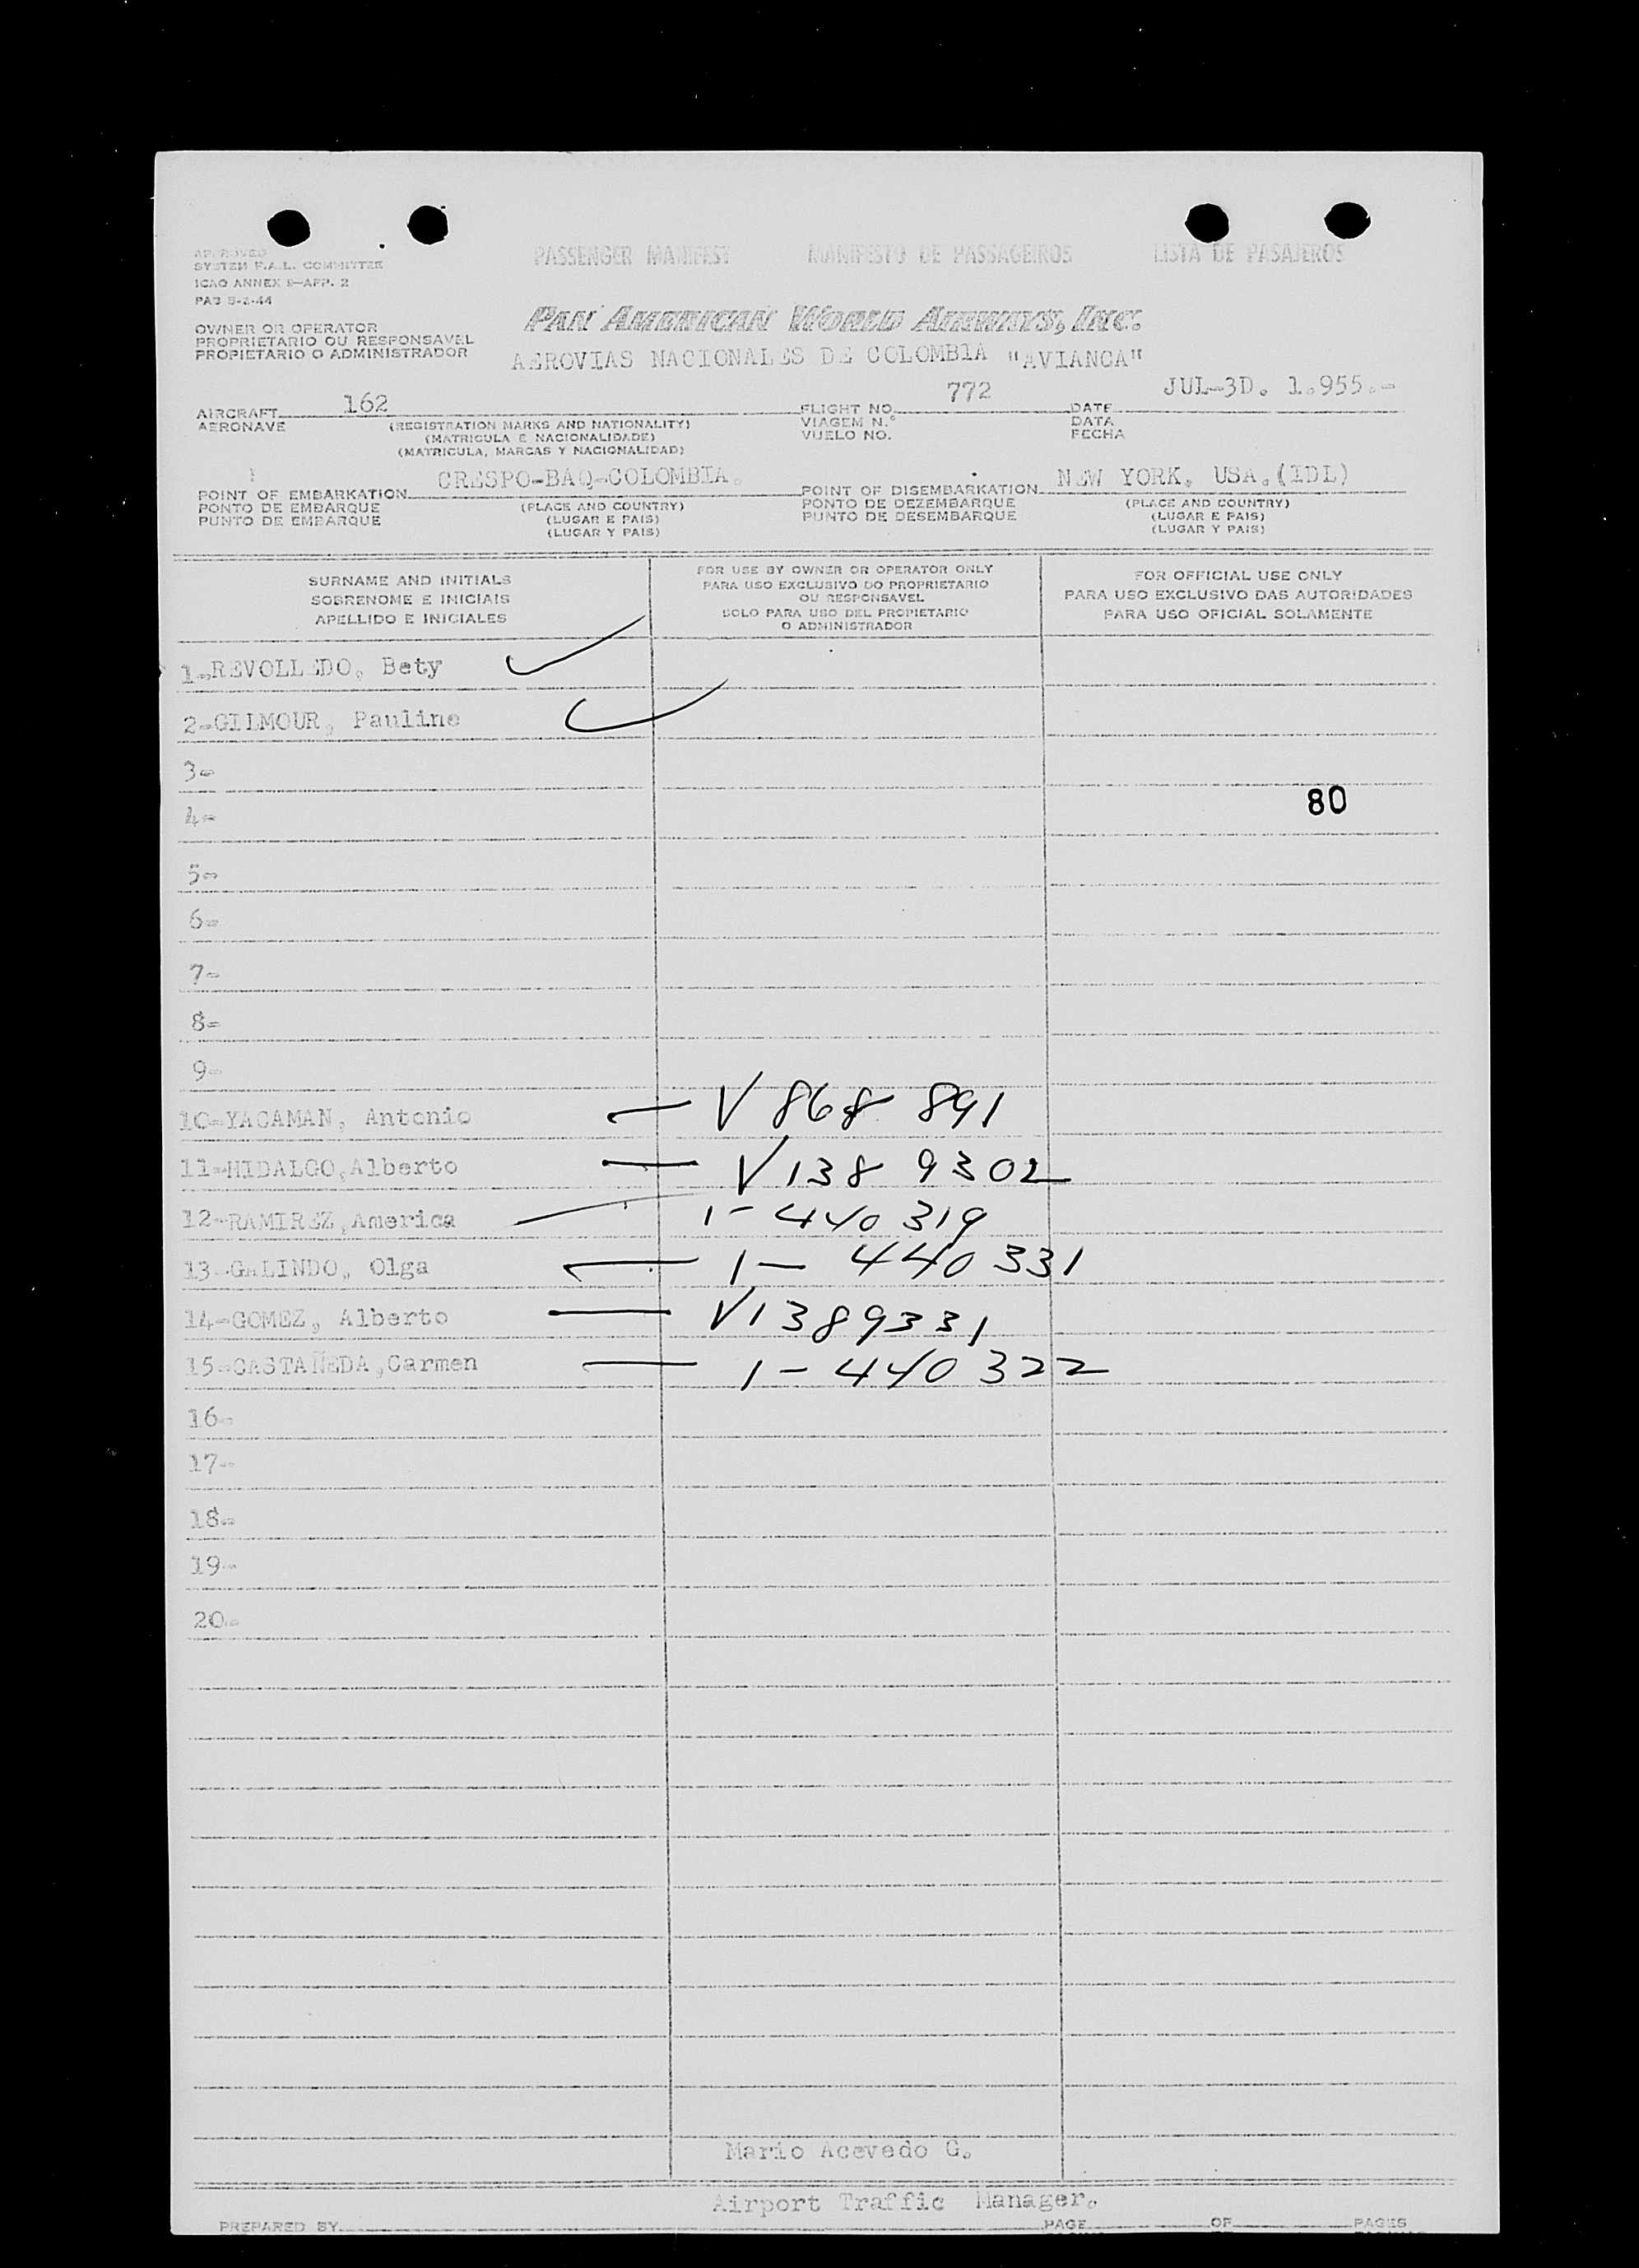 APPROVED
SYSTEM F.A.L. COMMITTEE
ICAO ANNEX 9—APP. 2
PAB 5-2-44
PASSENGER MANIFEST MANIFESTO DE PASSAGEIROS LISTA DE PASAJEROS
PAN AMERICAN WORLD AIRWAYS, INC.
OWNER OR OPERATOR
PROPRIETARIO OU RESPONSAVEL
PROPIETARIO O ADMINISTRADOR
AEROVIAS NACIONALES DE COLOMBIA "AVIANCA"
AIRCRAFT 162 FLIGHT NO. 772 DATE JUL-3D. 1.955.-
AERONAVE (REGISTRATION MARKS AND NATIONALITY) VIAGEM N.° DATA
(MATRICULA E NACIONALIDADE) VUELO NO. FECHA
(MATRICULA, MARCAS Y NACIONALIDAD)
POINT OF EMBARKATION CRESPO-BAQ-COLOMBIA. POINT OF DISEMBARKATION NEW YORK, USA.(IDL)
PONTO DE EMBARQUE (PLACE AND COUNTRY) PONTO DE DEZEMBARQUE (PLACE AND COUNTRY)
PUNTO DE EMBARQUE (LUGAR E PAIS) PUNTO DE DESEMBARQUE (LUGAR E PAIS)
(LUGAR Y PAIS) (LUGAR Y PAIS)
SURNAME AND INITIALS
SOBRENOME E INICIAIS
APELLIDO E INICIALES
FOR USE BY OWNER OR OPERATOR ONLY
PARA USO EXCLUSIVO DO PROPRIETARIO
OU RESPONSAVEL
SOLO PARA USO DEL PROPIETARIO
O ADMINISTRADOR
FOR OFFICIAL USE ONLY
PARA USO EXCLUSIVO DAS AUTORIDADES
PARA USO OFICIAL SOLAMENTE
1-REVOLLEDO, Bety
2-GILMOUR, Pauline
3-
80
4-
5-
6-
7-
8-
9-
10-YACAMAN, Antonio — V 868 891
11-HIDALGO,Alberto — V 138 9302
12-RAMIREZ,America — 1-440 319
13-GALINDO, Olga — 1-440 331
14-GOMEZ, Alberto — V1389331
15-CASTAÑEDA,Carmen — 1-440 322
16-
17-
18-
19-
20-
Mario Acevedo G.
Airport Traffic Manager.
PREPARED BY PAGE OF PAGES